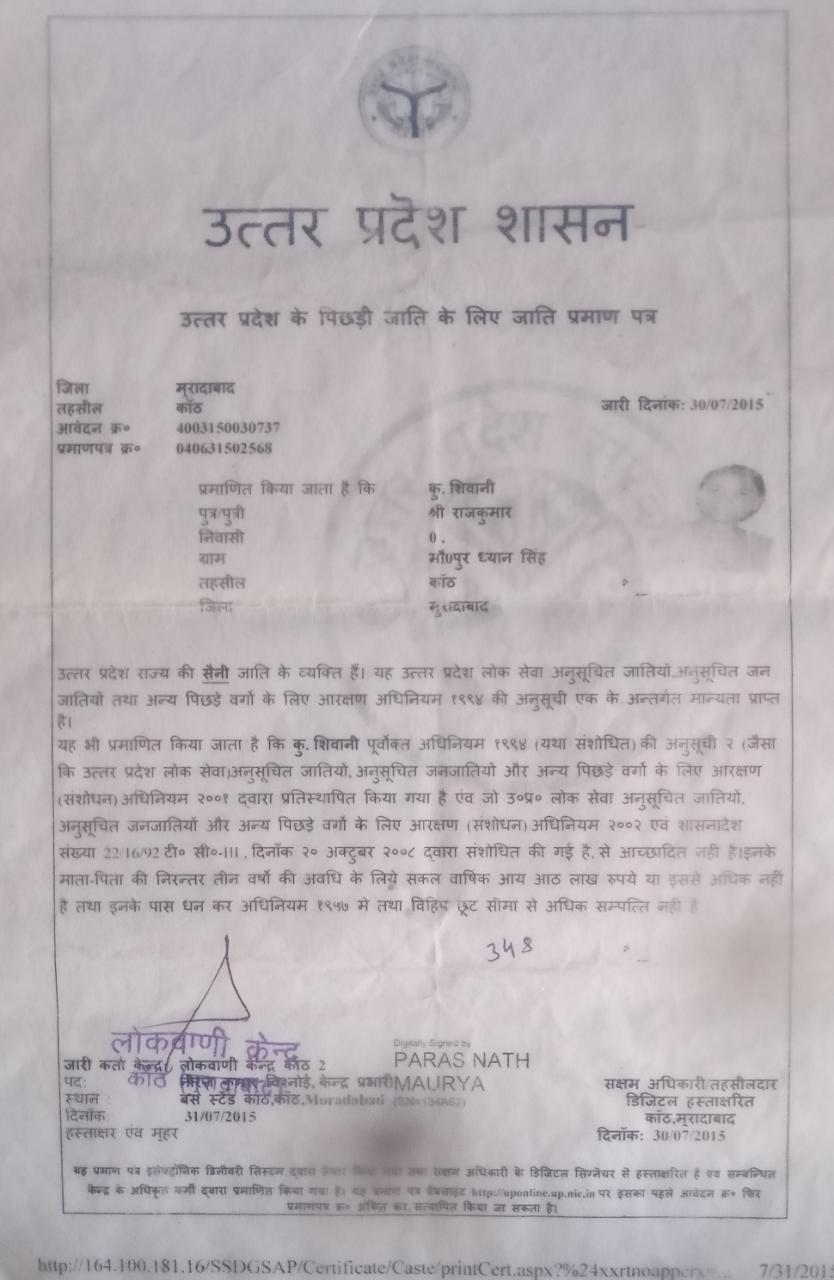 उत्तर प्रदेश शासन
उत्तर प्रदेश के पिछड़ी जाति के लिए जाति प्रमाण पत्र
जिला मुरादाबाद
तहसील काँठ जारी दिनांक: 30/07/2015
आवेदन क्र० 4003150030737
प्रमाणपत्र क्र० 040631502568
प्रमाणित किया जाता है कि कु. शिवानी
पुत्र/पुत्री श्री राजकुमार
निवासी 0 ,
ग्राम मौ0पुर ध्यान सिंह
तहसील काँठ
जिला मुरादाबाद
उत्तर प्रदेश राज्य की सैनी जाति के व्यक्ति हैं। यह उत्तर प्रदेश लोक सेवा अनुसूचित जातियों,अनुसूचित जन
जातियों तथा अन्य पिछड़े वर्गों के लिए आरक्षण अधिनियम १९९४ की अनुसूची एक के अन्तर्गत मान्यता प्राप्त
है।
यह भी प्रमाणित किया जाता है कि कु. शिवानी पूर्वोक्त अधिनियम १९९४ (यथा संशोधित) की अनुसूची २ (जैसा
कि उत्तर प्रदेश लोक सेवा)अनुसूचित जातियों, अनुसूचित जनजातियों और अन्य पिछड़े वर्गों के लिए आरक्षण
(संशोधन) अधिनियम २००१ द्वारा प्रतिस्थापित किया गया है एंव जो उ०प्र० लोक सेवा अनुसूचित जातियों,
अनुसूचित जनजातियों और अन्य पिछड़े वर्गों के लिए आरक्षण (संशोधन) अधिनियम २००२ एवं शासनादेश
संख्या 22/16/92 टी० सी०-III , दिनाँक २० अक्टुबर २००८ द्वारा संशोधित की गई है, से आच्छादित नहीं है।इनके
माता-पिता की निरन्तर तीन वर्षो की अवधि के लिये सकल वार्षिक आय आठ लाख रुपये या इससे अधिक नहीं
है तथा इनके पास धन कर अधिनियम १९५७ मे तथा विहिप छूट सीमा से अधिक सम्पत्ति नही है
348
लोकवाणी केन्द्र
काँठ
जारी कर्ता केन्द्र: लोकवाणी केन्द्र काँठ 2
पद: विश्नोई, केन्द्र प्रभारी
स्थान : बस स्टैंड काँठ,काँठ,Moradabad
दिनाँक: 31/07/2015
हस्ताक्षर एंव मुहर
Digitally Signed by
PARAS NATH
MAURYA
सक्षम अधिकारी/तहसीलदार
डिजिटल हस्ताक्षरित
काँठ,मुरादाबाद
दिनाँक: 30/07/2015
यह प्रमाण पत्र इलेक्ट्रॉनिक डिलीवरी सिस्टम द्वारा तैयार किया गया तथा सक्षम अधिकारी के डिजिटल सिग्नेचर से हस्ताक्षरित है एवं सम्बन्धित
केन्द्र के अधिकृत कर्मी द्वारा प्रमाणित किया गया है। यह प्रमाण पत्र वेबसाइट http://uponline.up.nic.in पर इसका पहले आवेदन क्र० फिर
प्रमाणपत्र क्र० अंकित कर, सत्यापित किया जा सकता है।
http://164.100.181.16/SSDGSAP/Certificate/Caste/printCert.aspx?%24xxrtnoappcrx=... 7/31/2015